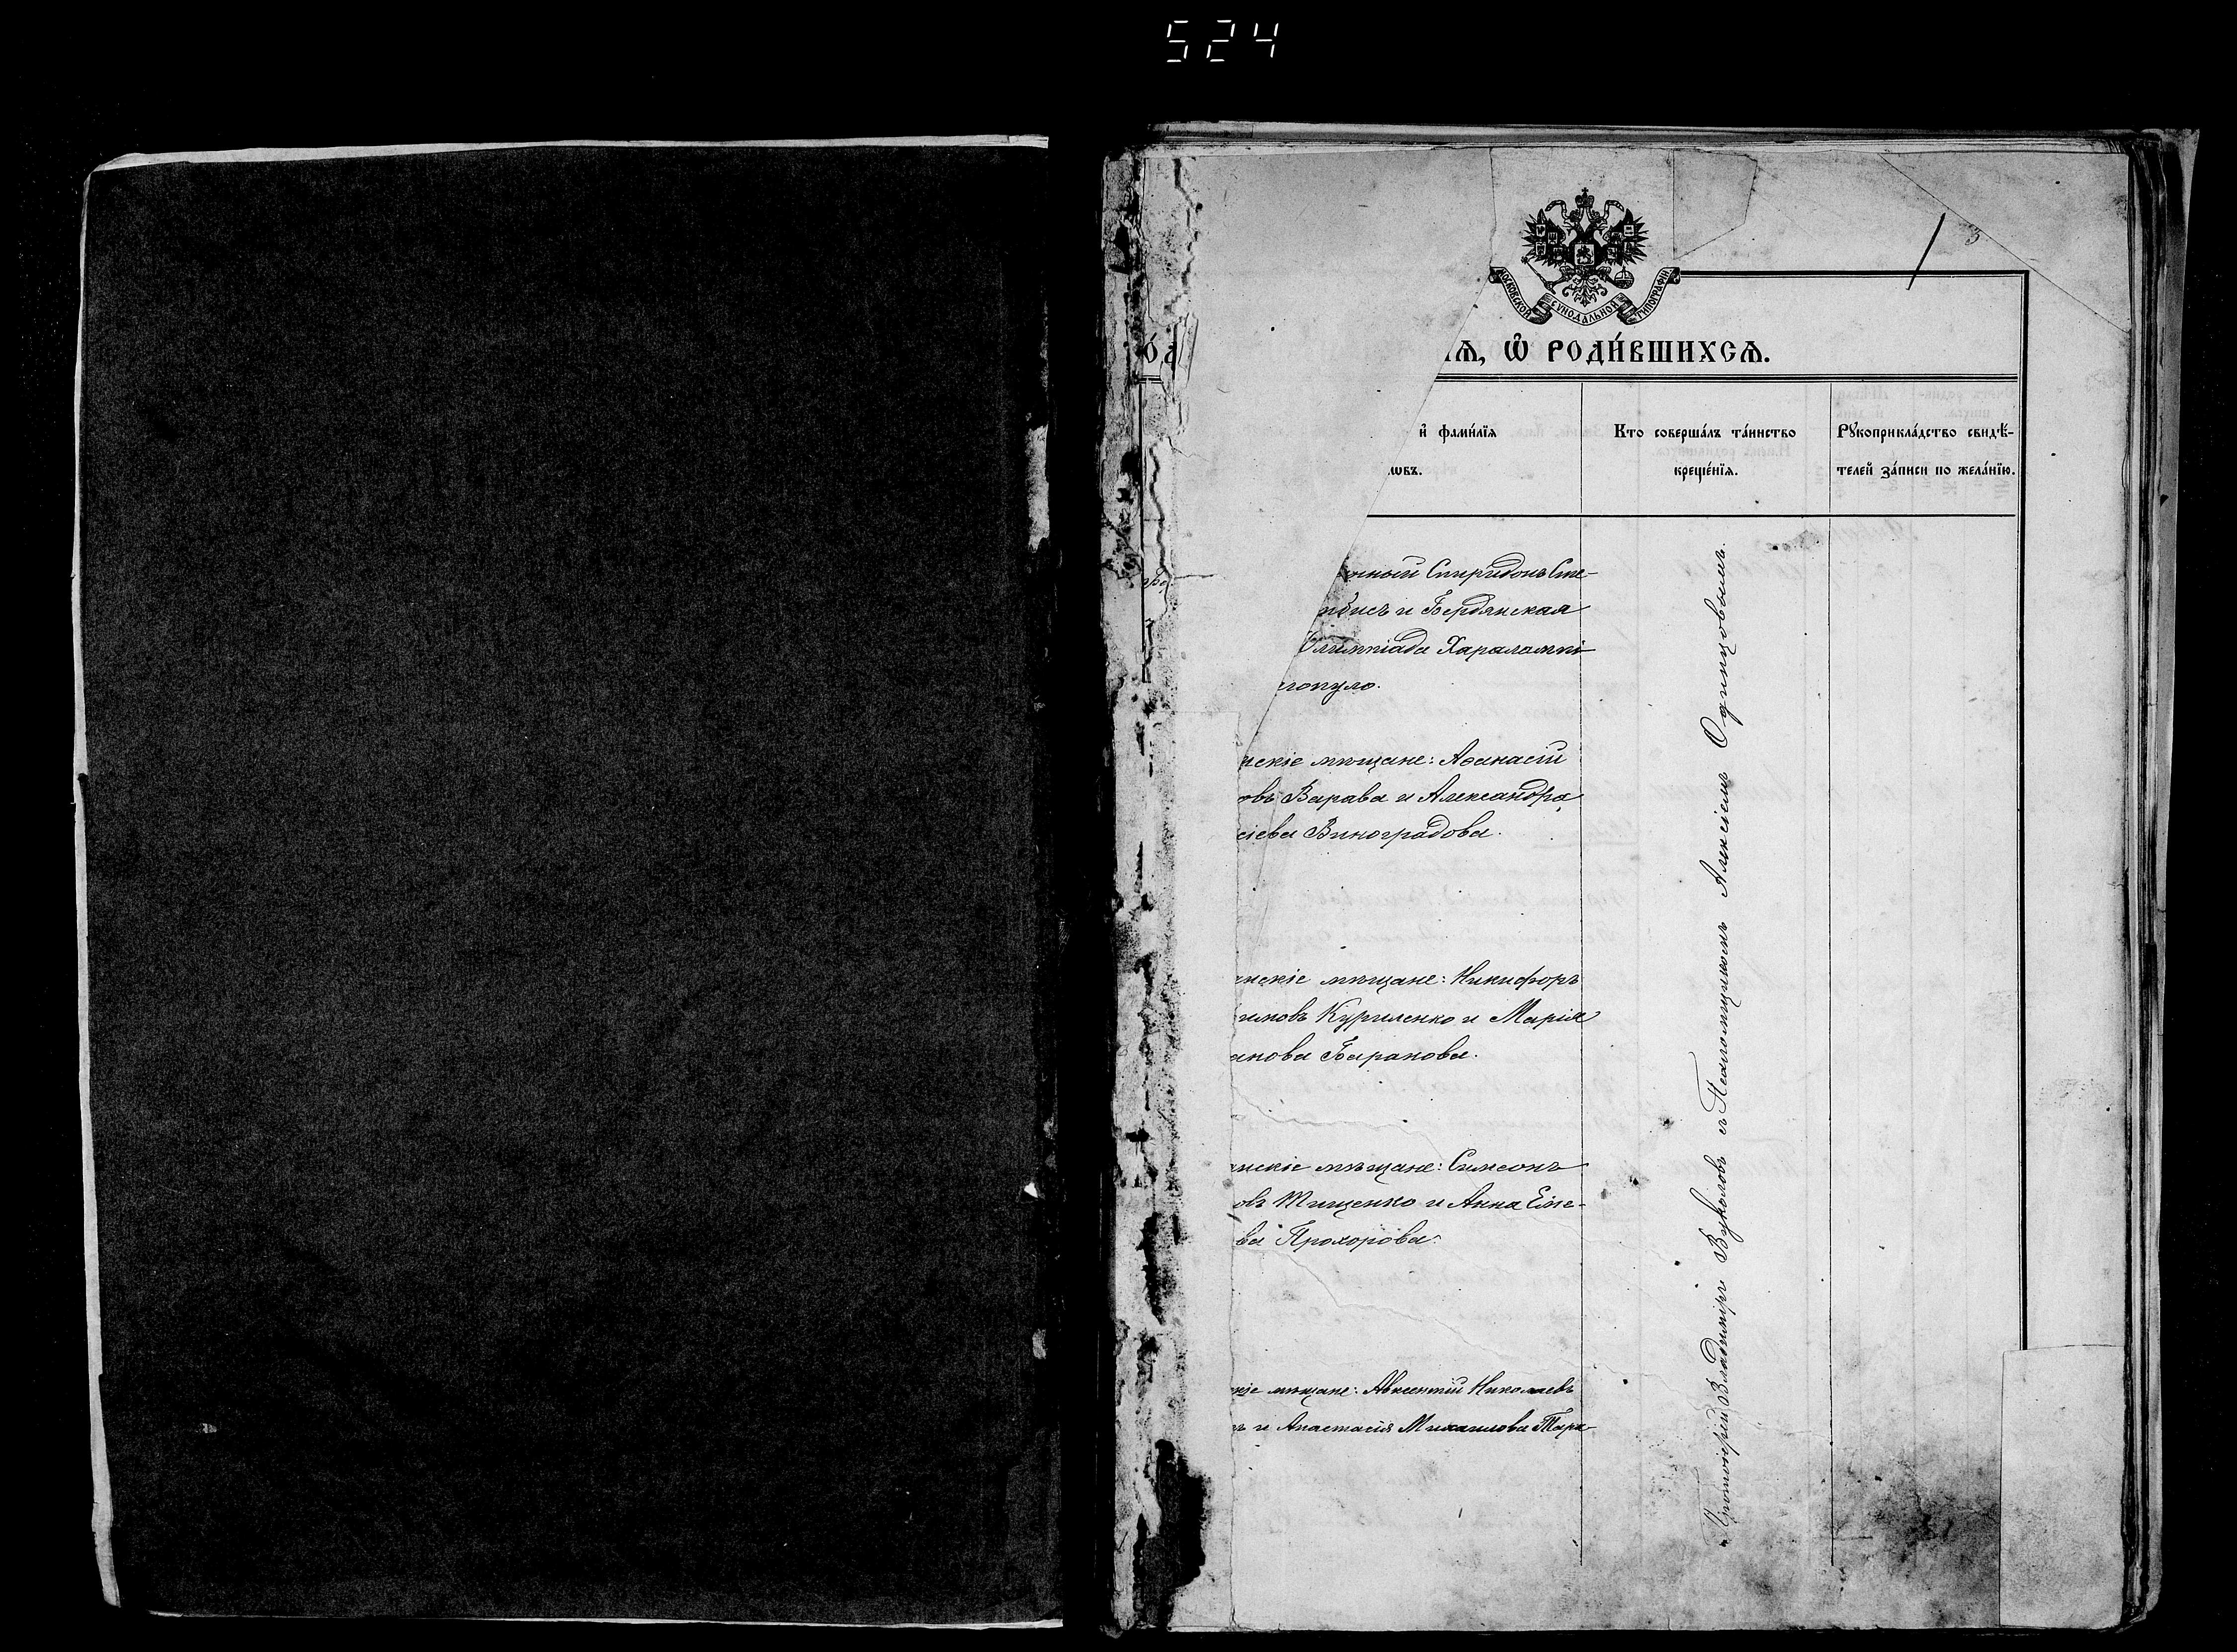 524
3
МОСКОВСКОЙ СУНОДАЛЬНОЙ ТИПОГРАФІИ
ІѦ, Ѿ РОДИ́ВШИХСѦ.
и҆ фами́лїѧ
Кто соверша́лъ та́инство
Рꙋкоприкла́дство свидѣ́-
лѡвъ.
креще́нїѧ.
телей за́писи по жела́нїю.
нный Спиридонъ Сте-
и Бердянская
Олимпіада Харалампі-
опуло.
нскіе мѣщане: Аѳанасій
овъ Варава и Александра
сіева Виноградова.
нскіе мѣщане: Никифоръ
имовъ Куриленко и Марія
анова Баранова.
нскіе мѣщане: Симеонъ
овъ Тищенко и Анна Елисе-
ва Прохорова.
кіе мѣщане: Авксентій Николаевъ
ъ и Анастасія Михаилова Тара-
Протоіерей Владиміръ Вуколовъ съ Псаломщикомъ Алексіемъ Одинцовымъ.